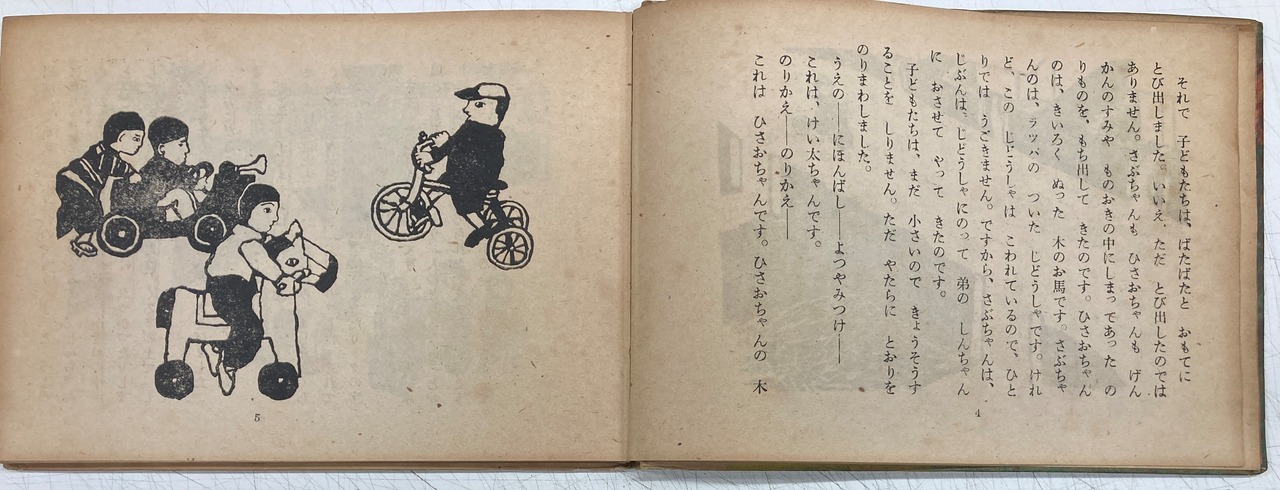 それで 子どもたちは、ばたばたと おもてに
とび出しました。いいえ、ただ とび出したのでは
ありません。さぶちゃんも ひさおちゃんも げん
かんのすみや ものおきの中にしまってあった の
りものを、もち出して きたのです。ひさおちゃん
のは、きいろく ぬった 木のお馬です。さぶちゃ
んのは、ラッパの ついた じどうしゃです。けれ
ど、この じどうしゃは こわれているので、ひと
りでは うごきません。ですから、さぶちゃんは、
じぶんは、じどうしゃにのって 弟の しんちゃん
に おさせて やって きたのです。
子どもたちは、まだ 小さいので きょうそうす
ることを しりません。ただ やたらに とおりを
のりまわしました。
うえの――にほんばし――よつやみつけ――
これは、けい太ちゃんです。
のりかえ――のりかえ――
これは ひさおちゃんです。ひさおちゃんの 木
4
5